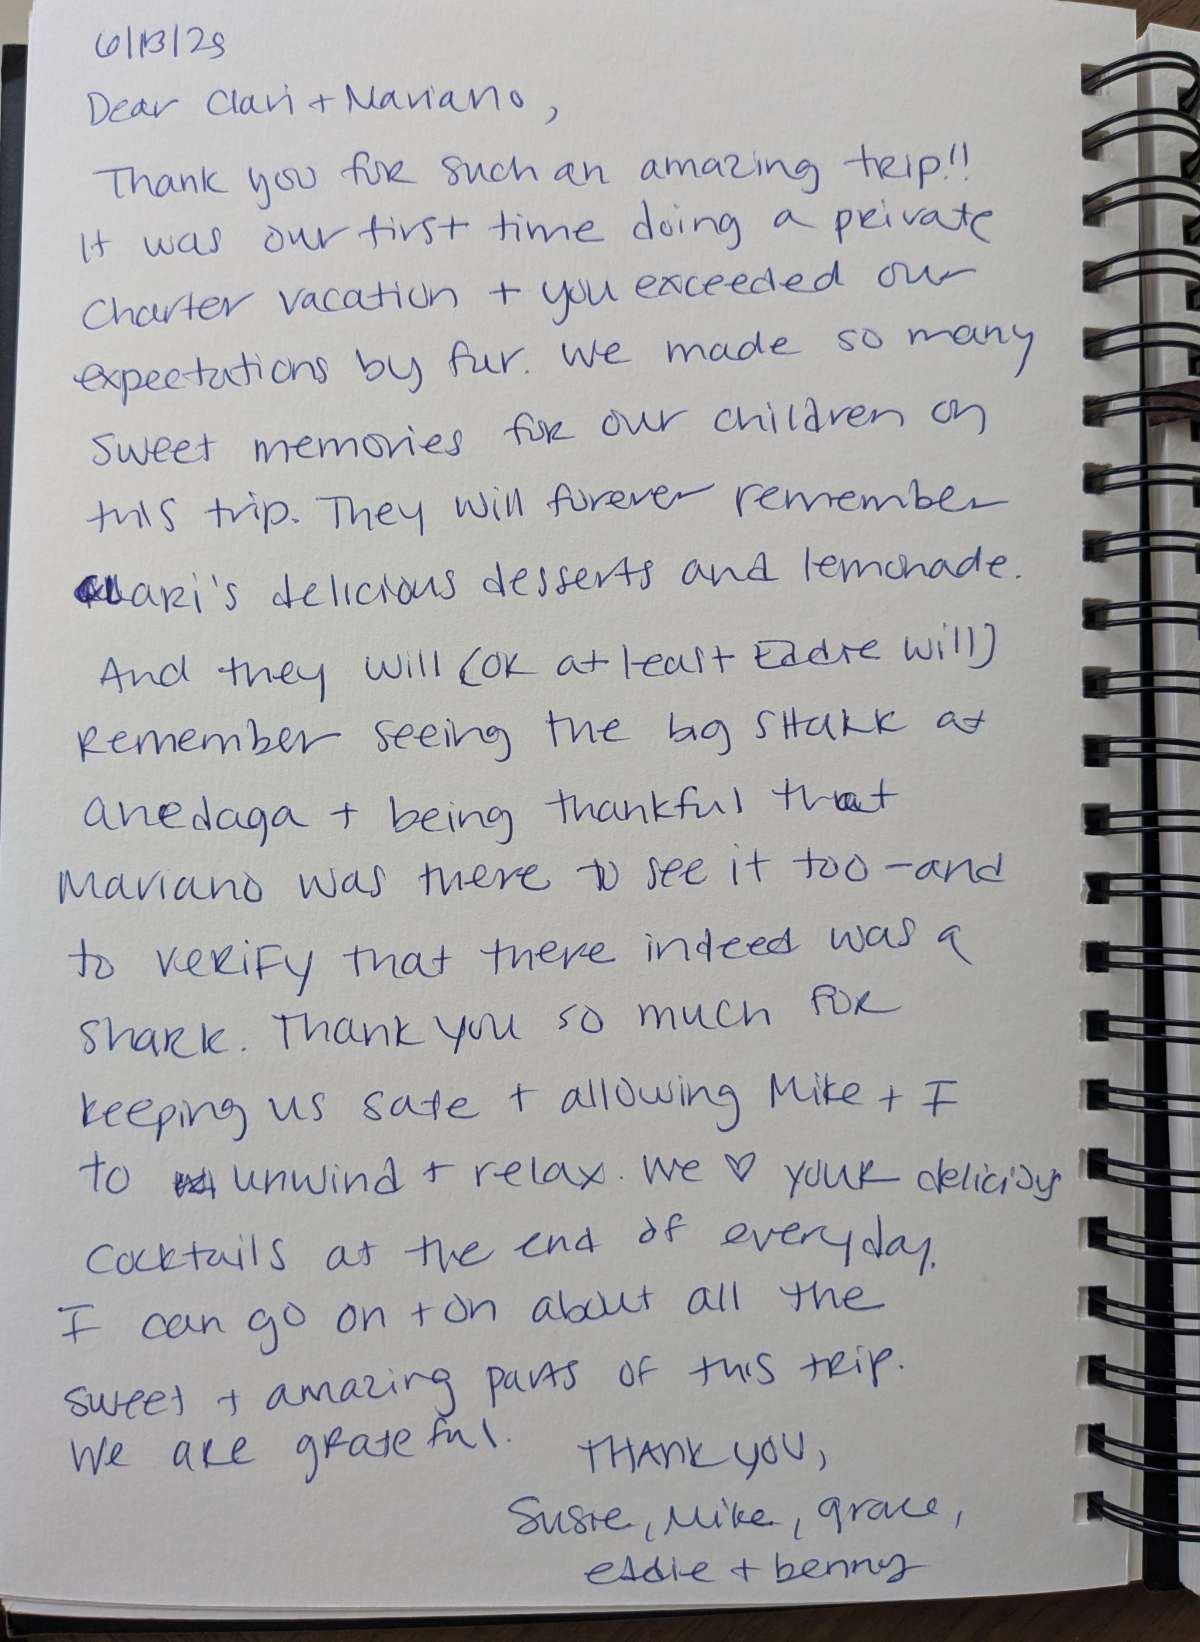 6/13/25
Dear Clari + Mariano,
Thank you for such an amazing trip!!
It was our first time doing a private
charter vacation + you exceeded our
expectations by far. We made so many
sweet memories for our children on
this trip. They will forever remember
Clari's delicious desserts and lemonade.
And they will (or at least Eddie will)
remember seeing the big shark at
anedaga + being thankful that
Mariano was there to see it too - and
to verify that there indeed was a
shark. Thank you so much for
keeping us safe + allowing Mike + I
to unwind + relax. We ♡ your delicious
cocktails at the end of everyday.
I can go on + on about all the
sweet + amazing parts of this trip.
We are grateful.
THANK YOU,
Susie, Mike, Grace,
Eddie + benny